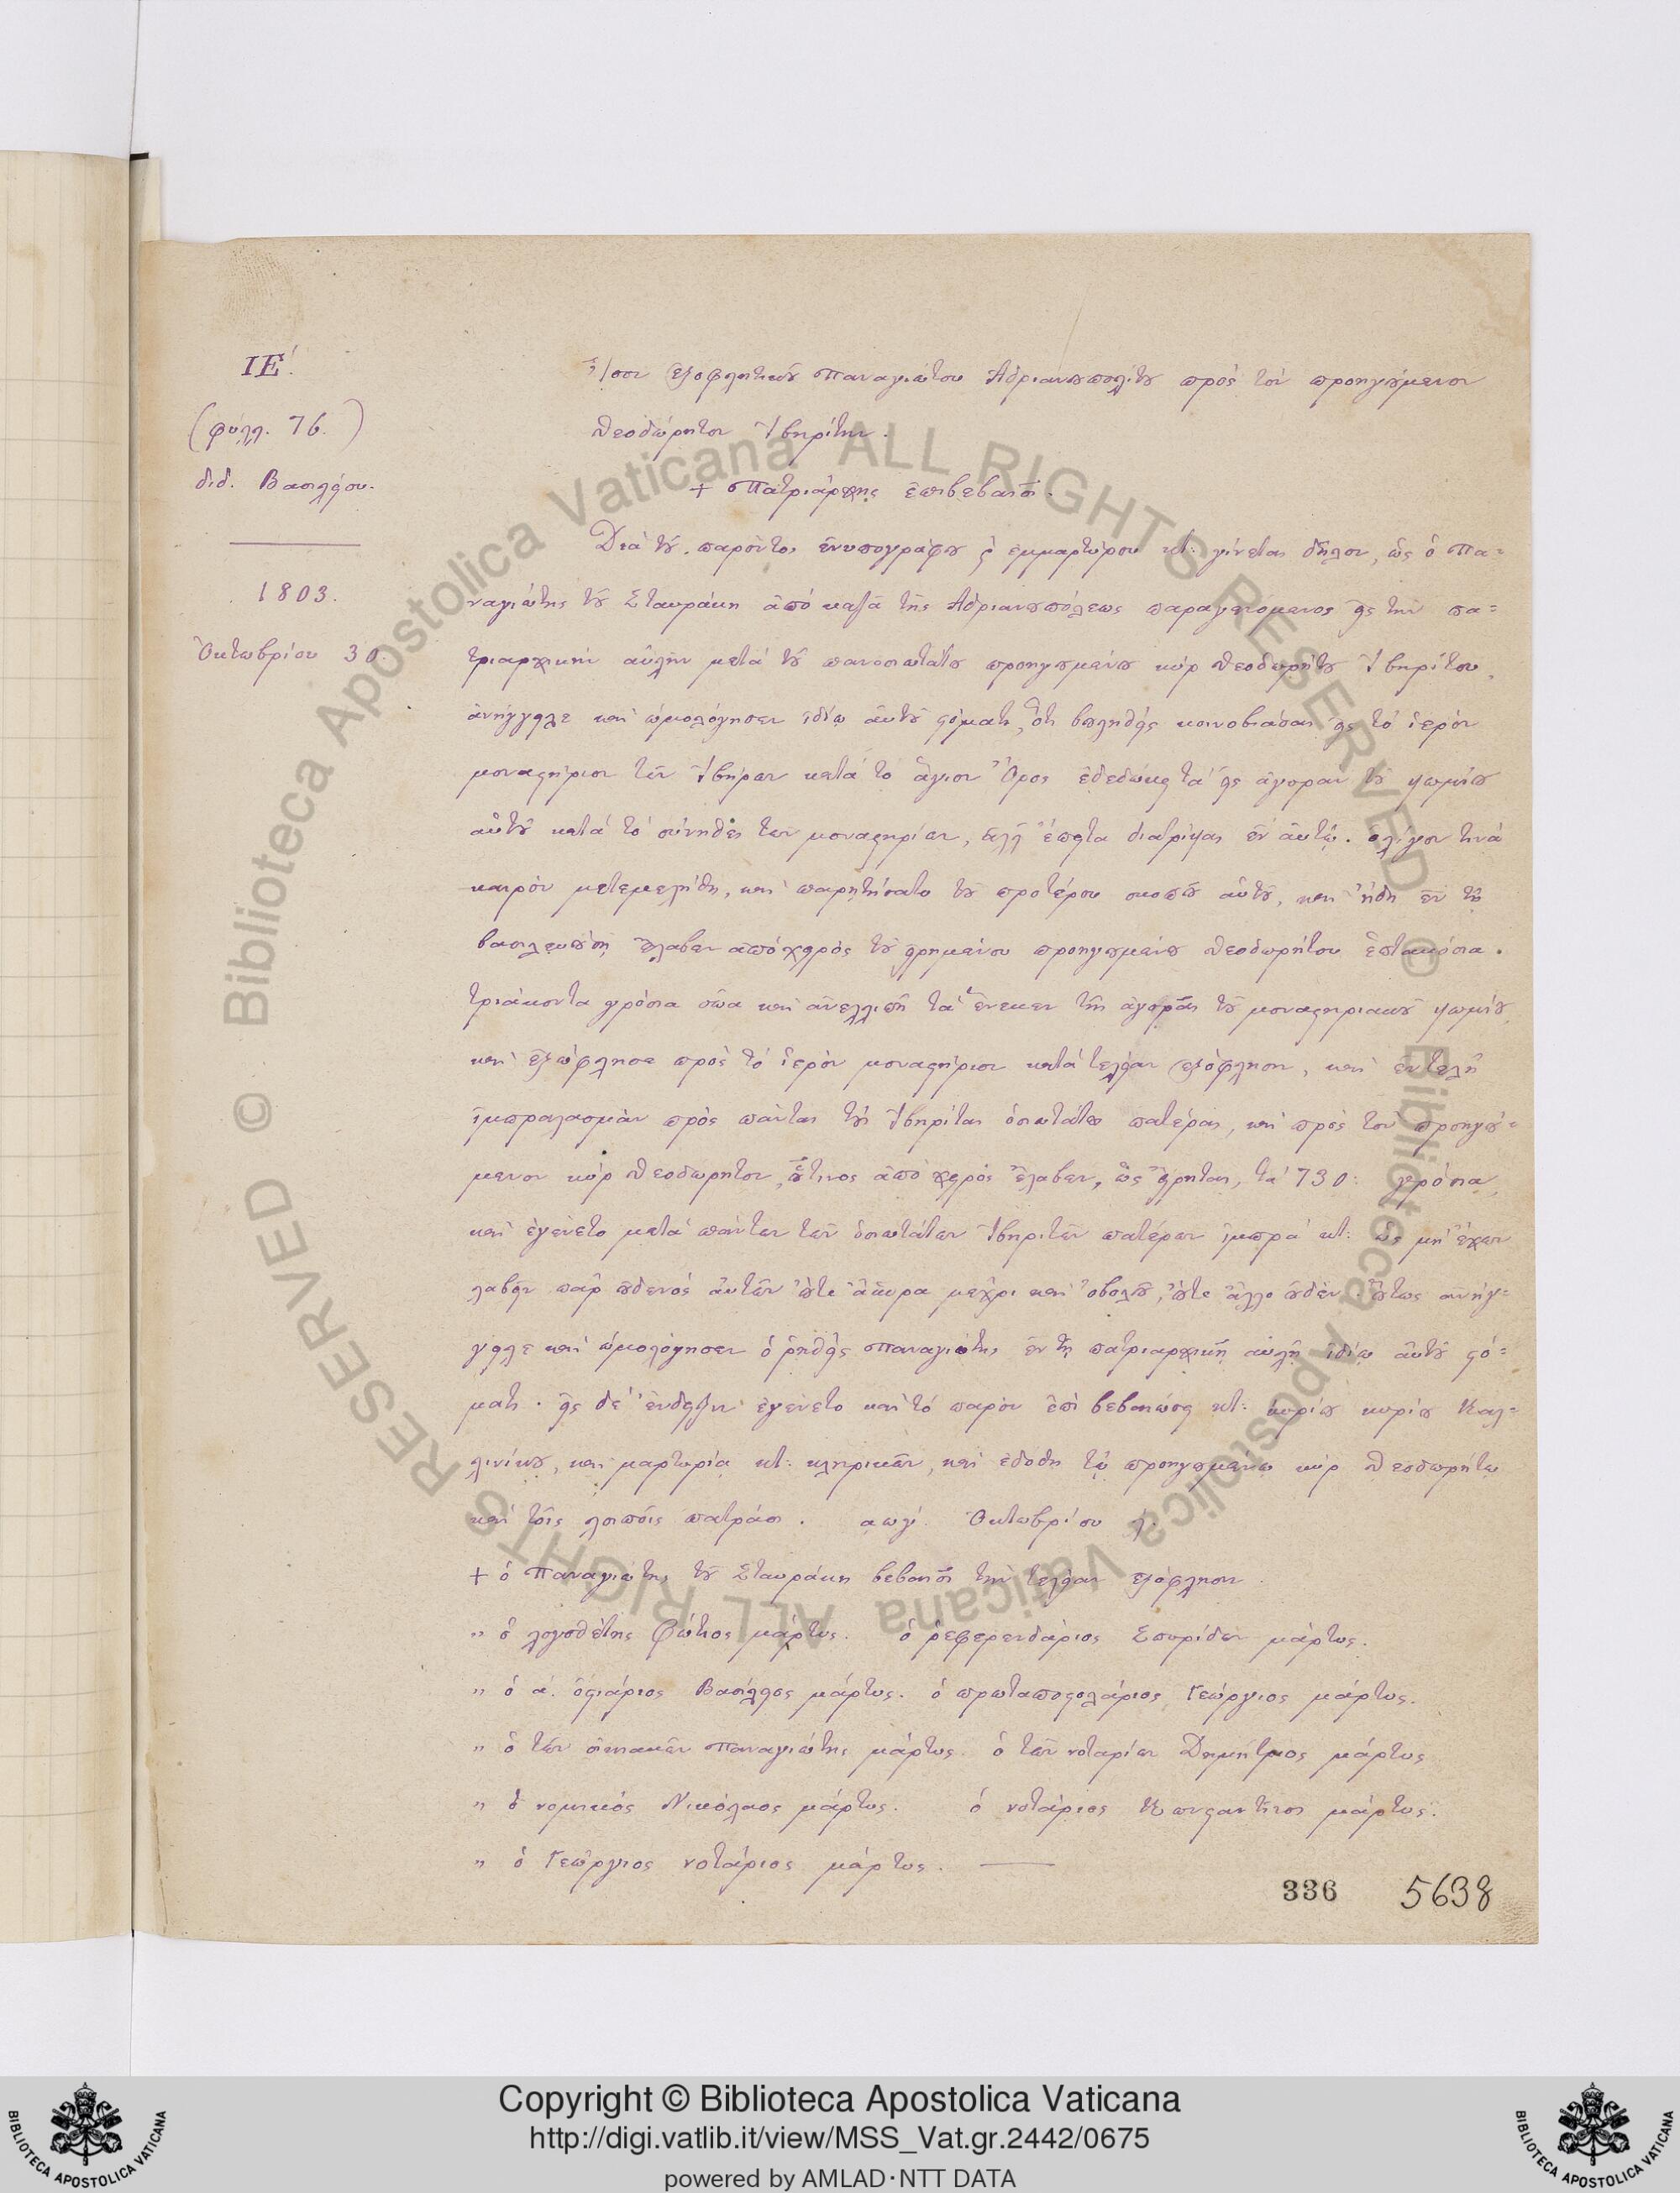 ΙΕ΄.
(φύλλ. 76.)
διδ. Βασιλείου.
1803.
Ὀκτωβρίου 30.
Ἴσον ἐξοφλητικοῦ Παναγιώτου Ἀδριανουπολίτου πρὸς τὸν προηγούμενον
Θεοδώρητον Ἰβηρίτην.
+ Πατριάρχης ἐπιβεβαιοῖ.
Διὰ τοῦ παρόντος ἐνυπογράφου ϗ ἐμμαρτύρου κτ: γίνεται δῆλον, ὡς ὁ Πα=
ναγιώτης τοῦ Σταυράκη ἀπὸ καζᾶ τῆς Ἀδριανουπόλεως παραγενόμενος εἰς τὴν πα=
τριαρχικὴν αὐλὴν μετὰ τοῦ πανοσιωτάτου προηγουμένου κὺρ Θεοδωρήτου Ἰβηρίτου,
ἀνήγγειλε καὶ ὡμολόγησεν ἰδίῳ αὐτοῦ στόματι, ὅτι βουληθεὶς κοινοβιάσαι εἰς τὸ ἱερὸν
μοναστήριον τῶν Ἰβήρων κατὰ τὸ ἅγιον Ὄρος ἐδεδώκει τὰ εἰς ἀγορὰν τοῦ ψωμίου
αὐτοῦ κατὰ τὸ σύνηθες των μοναστηρίων, ἀλλ' ἔπειτα διατρίψας ἐν αὐτῷ. ὀλίγον τινὰ
καιρὸν μετεμελήθη, καὶ παρῃτήσατο τοῦ προτέρου σκοποῦ αὐτοῦ, καὶ ἤδη ἐν τῇ
βασιλευούσῃ ἔλαβεν ἀπὸ χειρὸς τοῦ εἰρημένου προηγουμένου Θεοδωρήτου ἑπτακόσια.
τριάκοντα γρόσια σῶα καὶ ἀνελλιπῆ τὰ ἕνεκεν τῆς ἀγορᾶς τοῦ μοναστηριακοῦ ψωμίου,
καὶ ἐξώφλησε πρὸς τὸ ἱερὸν μοναστήριον κατὰ τελείαν ἐξόφλησιν, καὶ ἐντελῆ
ἰμπραλασμὸν πρὸς πάντας τοὺς Ἰβηρίτας ὁσιωτάτου πατέρας, καὶ πρὸς τὸν προηγού=
μενον κὺρ Θεοδώρητον, οὗτινος ἀπὸ χειρὸς ἔλαβεν, ὡς εἴρηται, τὰ 730: γρόσια,
καὶ ἐγένετο μετὰ πάντων τῶν ὁσιωτάτων Ἰβηριτῶν πατέρων ἰμπρὰ κτ: ὡς μὴ ἔχων
λαβεῖν παρ' οὐδενὸς αὐτῶν οὔτε ἄσπρα μέχρι καὶ ὀβολοῦ, οὔτε ἄλλο οὐδέν. οὕτως ἀνήγ=
γειλε καὶ ὡμολόγησεν ὁ ῥηθεὶς Παναγιώτης ἐν τῇ πατριαρχικῇ αὐλῇ ἰδίῳ αὐτοῦ στό=
ματι. εἰς δὲ ἔνδειξιν ἐγένετο καὶ τὸ παρὸν ἐπὶ βεβαιώσει κτ: κυρίου κυρίου Καλ=
λινίκου, καὶ μαρτυρίᾳ κτ: κληρικῶν, καὶ ἐδόθη τῷ προηγουμένῳ κὺρ Θεοδωρήτῳ
καὶ τοῖς λοιποῖς πατράσι. αωγ΄. Ὀκτωβρίου λ΄.
+ ὁ Παναγιώτης τοῦ Σταυράκη βεβαιοῖ τὴν τελείαν ἐξόφλησιν.
" ὁ λογοθέτης Φώτιος μάρτυς. ὁ ῥεφερενδάριος Σπυρίδων μάρτυς.
" ὁ α΄. ὀστιάριος Βασίλειος μάρτυς. ὁ πρωταποστολάριος Γεώργιος μάρτυς.
" ὁ τῶν οἰκιακῶν Παναγιώτης μάρτυς. ὁ τῶν νοταρίων Δημήτριος μάρτυς
" ὁ νομικός Νικόλαος μάρτυς. ὁ νοτάριος Κωνσταντῖνος μάρτυς.
" ὁ Γεώργιος νοτάριος μάρτυς.
336 5638
© Biblioteca Apostolica Vaticana ALL RIGHTS RESERVED © Biblioteca Apostolica Vaticana ALL RIGHTS RESERVED
Copyright © Biblioteca Apostolica Vaticana
http://digi.vatlib.it/view/MSS_Vat.gr.2442/0675
powered by AMLAD·NTT DATA
BIBLIOTECA APOSTOLICA VATICANA
BIBLIOTECA APOSTOLICA VATICANA